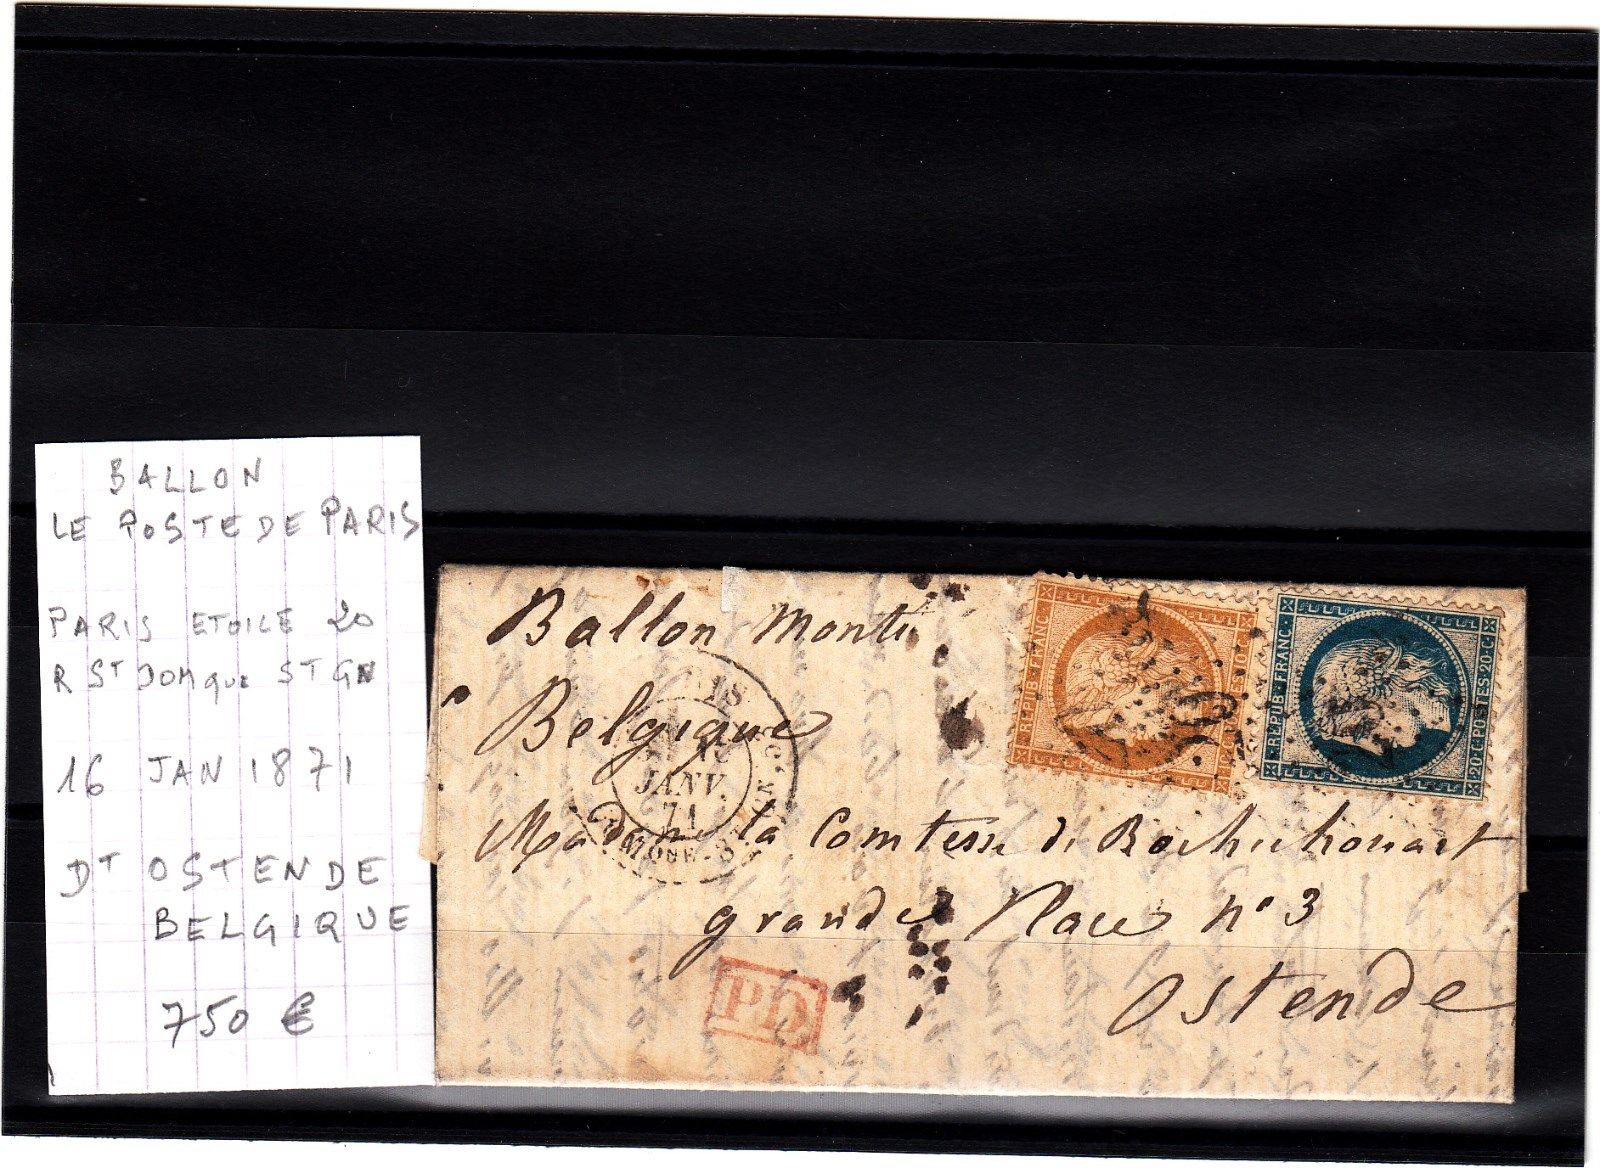 BALLON
LE POSTE DE PARIS
PARIS ETOILE 20
R ST DOMque ST GN
16 JAN 1871
DT OSTENDE
BELGIQUE
750 €
Ballon Monté
Belgique
JANV.
71
Madame la Comtesse de Rochechouart
grande Place n° 3
Ostende
PD
REPUB. FRANC.
REPUB. FRANC.
20 C. POSTES. 20 C.